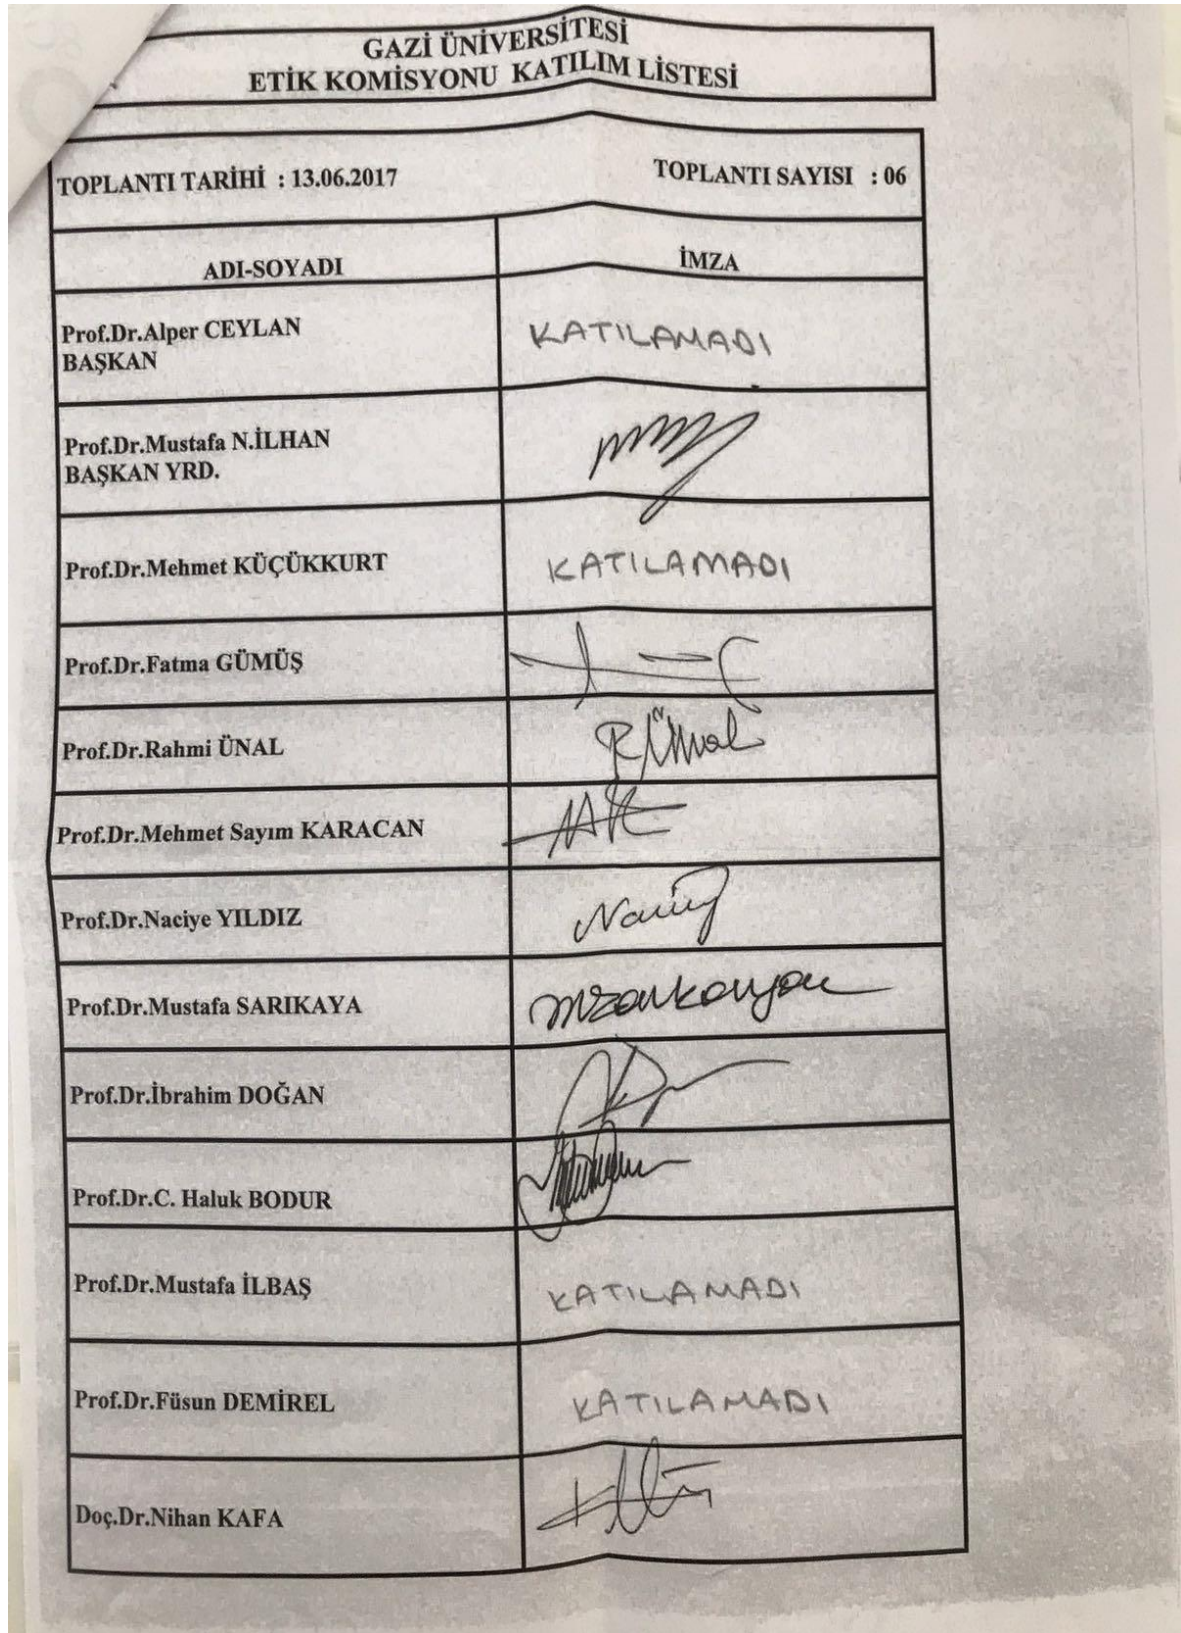 GAZİ ÜNİVERSİTESİ
ETİK KOMİSYONU KATILIM LİSTESİ
TOPLANTI TARİHİ : 13.06.2017 TOPLANTI SAYISI : 06
ADI-SOYADI İMZA
Prof.Dr.Alper CEYLAN
BAŞKAN
KATILAMADI
Prof.Dr.Mustafa N.İLHAN
BAŞKAN YRD.
Prof.Dr.Mehmet KÜÇÜKKURT KATILAMADI
Prof.Dr.Fatma GÜMÜŞ
Prof.Dr.Rahmi ÜNAL R.Ünal
Prof.Dr.Mehmet Sayım KARACAN
Prof.Dr.Naciye YILDIZ
Prof.Dr.Mustafa SARIKAYA
Prof.Dr.İbrahim DOĞAN
Prof.Dr.C. Haluk BODUR
Prof.Dr.Mustafa İLBAŞ KATILAMADI
Prof.Dr.Füsun DEMİREL KATILAMADI
Doç.Dr.Nihan KAFA